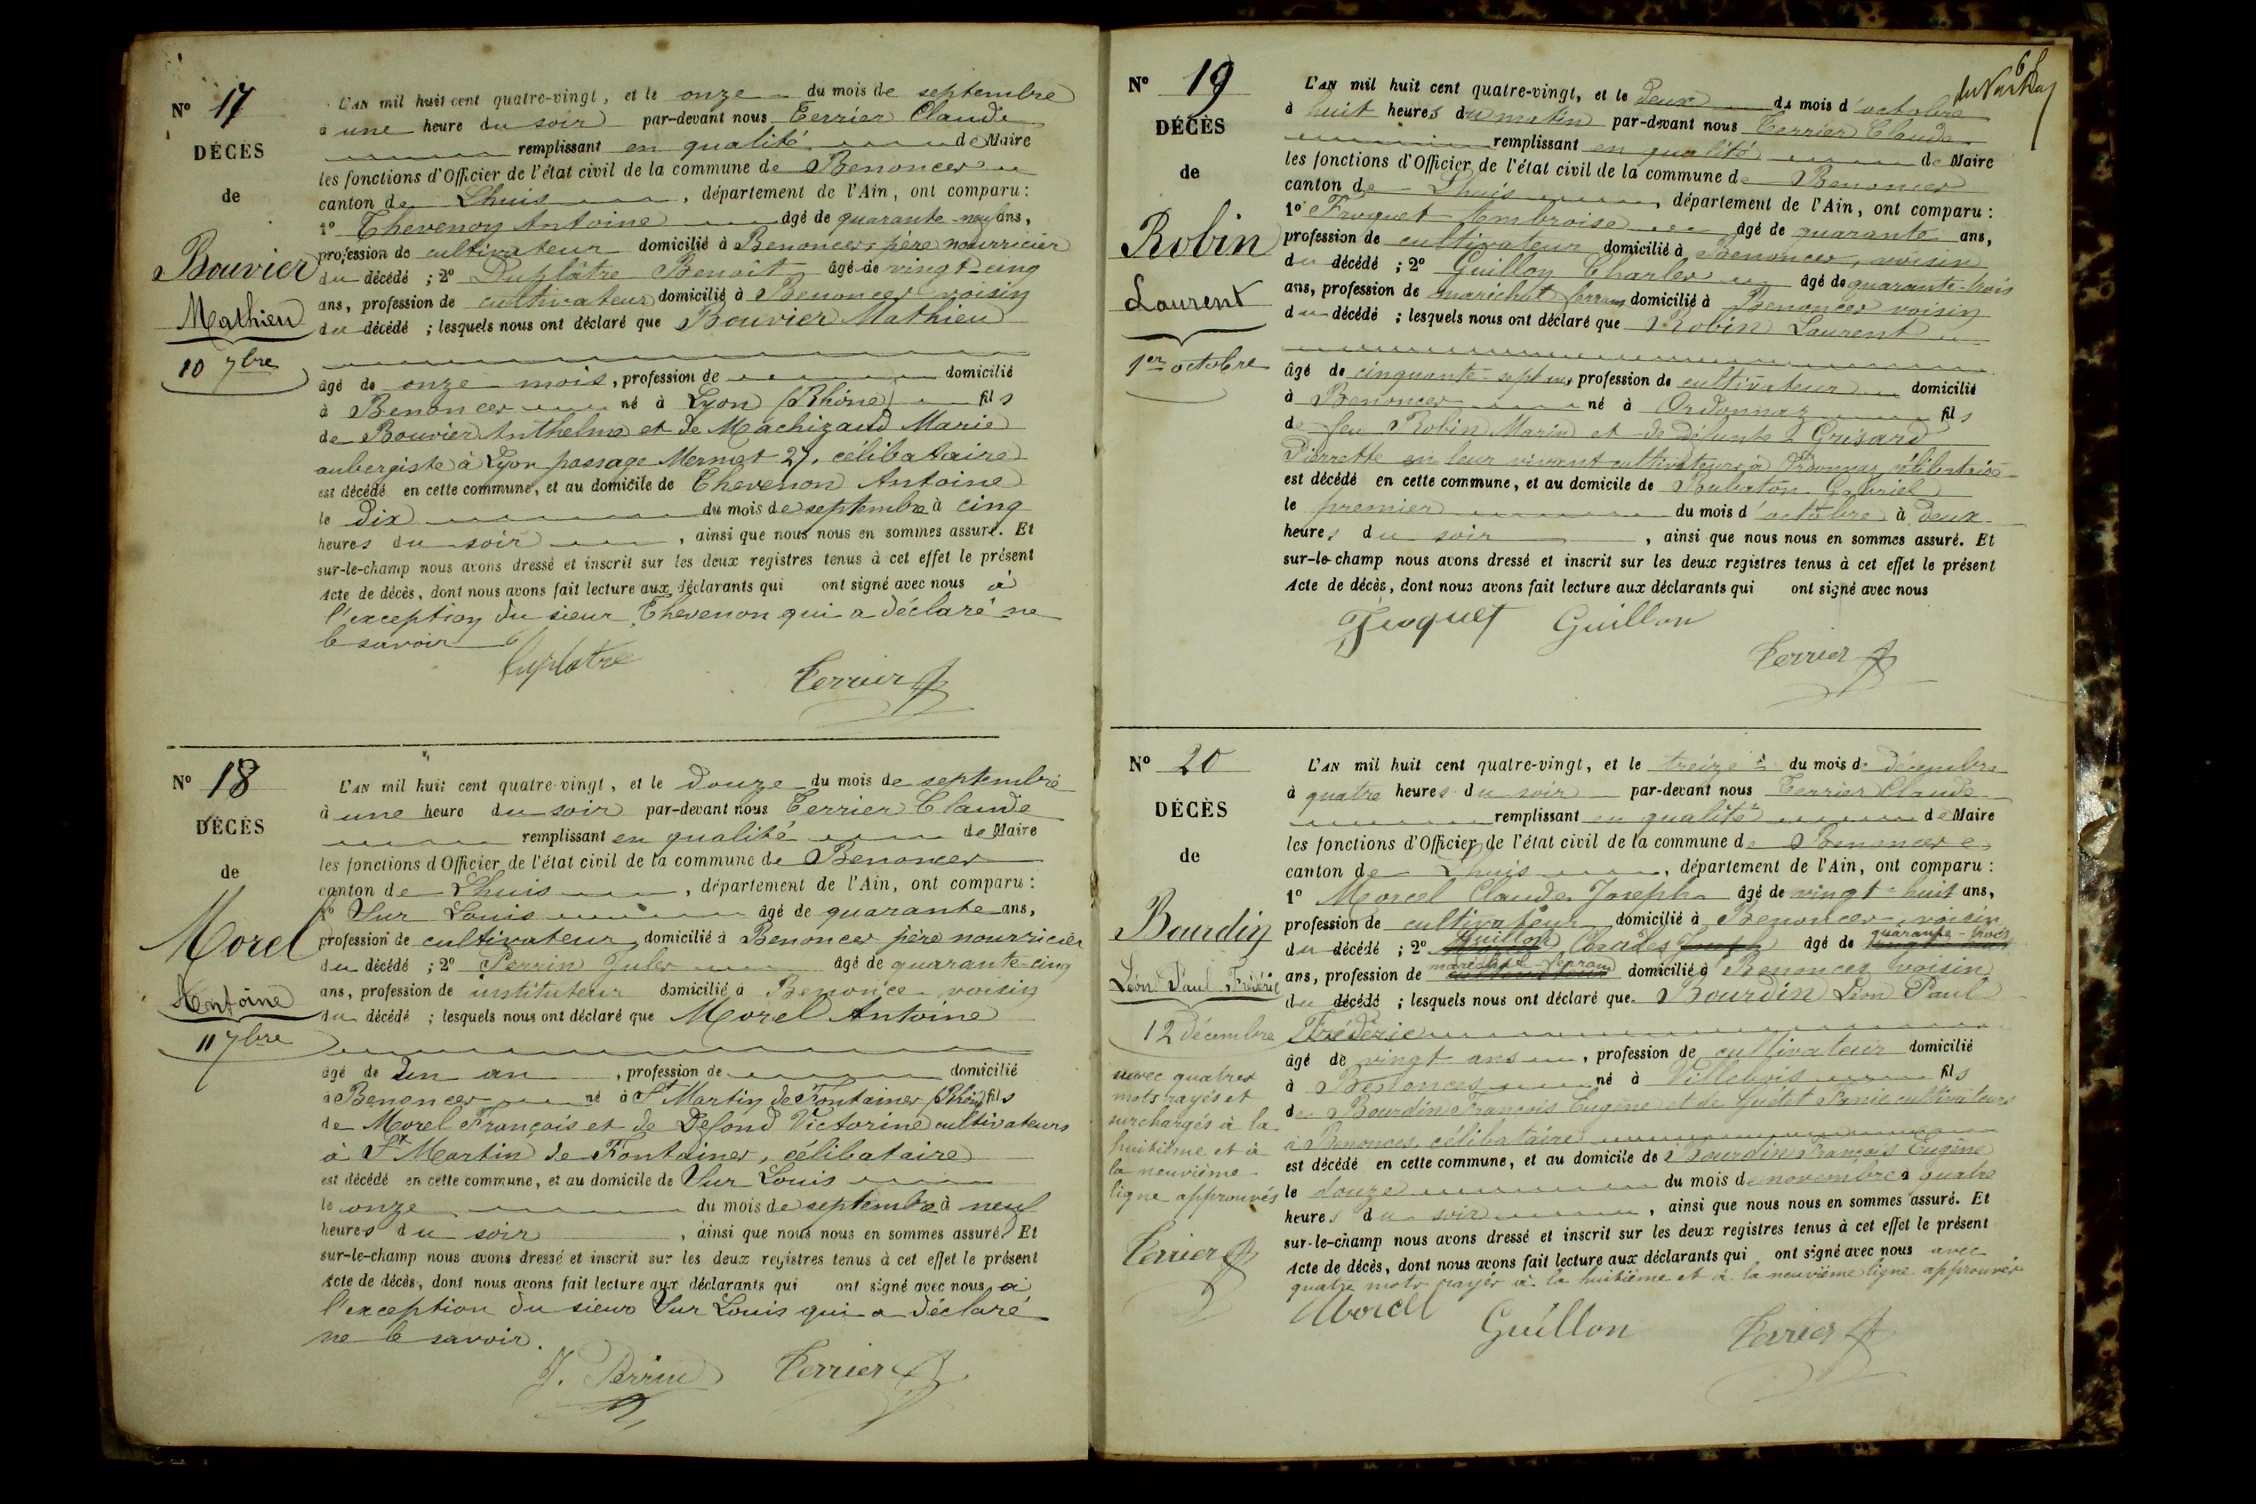 N° 17
DÉCÈS
de
Bouvier
Mathieu
10 7bre
L'AN mil huit cent quatre-vingt, et le onze du mois de septembre
à une heure du soir par-devant nous Terrier Claude
remplissant en qualité de Maire
les fonctions d'Officier de l'état civil de la commune de Benonces
canton de Lhuis, département de l'Ain, ont comparu :
1° Thevenon Antoine âgé de quarante-neuf ans,
profession de cultivateur domicilié à Benonces, père nourricier
du décédé ; 2° Duplâtre Benoit âgé de vingt-cinq
ans, profession de cultivateur domicilié à Benonces voisin
du décédé ; lesquels nous ont déclaré que Bouvier Mathieu
âgé de onze mois, profession de domicilié
à Benonces né à Lyon (Rhône) fils
de Bouvier Anthelme et de Machizaud Marie
aubergiste à Lyon passage Mermet 27, célibataire
est décédé en cette commune, et au domicile de Thevenon Antoine
le dix du mois de septembre à cinq
heures du soir, ainsi que nous nous en sommes assuré. Et
sur-le-champ nous avons dressé et inscrit sur les deux registres tenus à cet effet le présent
Acte de décès, dont nous avons fait lecture aux déclarants qui ont signé avec nous à
l'exception du sieur Thevenon qui a déclaré ne
le savoir
Duplatre Terrier
N° 18
DÉCÈS
de
Morel
Antoine
11 7bre
L'AN mil huit cent quatre-vingt, et le douze du mois de septembre
à une heure du soir par-devant nous Terrier Claude
remplissant en qualité de Maire
les fonctions d'Officier de l'état civil de la commune de Benonces
canton de Lhuis, département de l'Ain, ont comparu :
1° Sur Louis âgé de quarante ans,
profession de cultivateur domicilié à Benonces père nourricier
du décédé ; 2° Perrin Jules âgé de quarante-cinq
ans, profession de instituteur domicilié à Benonce voisin
du décédé ; lesquels nous ont déclaré que Morel Antoine
âgé de un an, profession de domicilié
à Benonces né à St Martin de Fontaines (Rhône) fils
de Morel François et de Defond Victorine cultivateurs
à St Martin de Fontaines, célibataire
est décédé en cette commune, et au domicile de Sur Louis
le onze du mois de septembre à neuf
heures du soir, ainsi que nous nous en sommes assuré. Et
sur-le-champ nous avons dressé et inscrit sur les deux registres tenus à cet effet le présent
Acte de décès, dont nous avons fait lecture aux déclarants qui ont signé avec nous, à
l'exception du sieur Sur Louis qui a déclaré
ne le savoir.
J. Perrin Terrier
N° 19
DÉCÈS
de
Robin
Laurent
1er octobre
L'AN mil huit cent quatre-vingt, et le deux du mois d'octobre
à huit heures du matin par-devant nous Terrier Claude
remplissant en qualité de Maire
les fonctions d'Officier de l'état civil de la commune de Benonces
canton de Lhuis, département de l'Ain, ont comparu :
1° Froquet Ambroise âgé de quarante ans,
profession de cultivateur domicilié à Benonces, voisin
du décédé ; 2° Guillon Charles âgé de quarante-trois
ans, profession de maréchal ferrant domicilié à Benonces voisin
du décédé ; lesquels nous ont déclaré que Robin Laurent
âgé de cinquante-sept ans, profession de cultivateur domicilié
à Benonces né à Ordonnaz fils
de feu Robin Marin et de défunte Grisard
Pierrette en leur vivant cultivateurs à Ordonnaz, célibataire
est décédé en cette commune, et au domicile de Gabriel
le premier du mois d'octobre à deux
heures du soir, ainsi que nous nous en sommes assuré. Et
sur-le-champ nous avons dressé et inscrit sur les deux registres tenus à cet effet le présent
Acte de décès, dont nous avons fait lecture aux déclarants qui ont signé avec nous
Froquet Guillon
Terrier
N° 20
DÉCÈS
de
Bourdin
Léon Paul Frédéric
12 décembre
avec quatres
mots rayés et
surchargés à la
huitième et à
la neuvième
ligne approuvés
Terrier
L'AN mil huit cent quatre-vingt, et le treize du mois de décembre
à quatre heures du soir par-devant nous Terrier Claude
remplissant en qualité de Maire
les fonctions d'Officier de l'état civil de la commune de Benonces
canton de Lhuis, département de l'Ain, ont comparu :
1° Morcel Claude Joseph âgé de vingt-huit ans,
profession de cultivateur domicilié à Benonces, voisin
du décédé ; 2° Guillon Charles âgé de quarante-trois
ans, profession de maréchal-ferrand domicilié à Benonces voisin
du décédé ; lesquels nous ont déclaré que Bourdin Léon Paul
Frédéric
âgé de vingt ans, profession de cultivateur domicilié
à Benonces né à Villebois fils
de Bourdin François Eugène et de cultivateurs
à Benonces, célibataire
est décédé en cette commune, et au domicile de Bourdin François Eugène
le douze du mois de novembre à quatre
heures du soir, ainsi que nous nous en sommes assuré. Et
sur-le-champ nous avons dressé et inscrit sur les deux registres tenus à cet effet le présent
Acte de décès, dont nous avons fait lecture aux déclarants qui ont signé avec nous avec
quatre mots rayés à la huitième et à la neuvième ligne approuvés
Morcel Guillon Terrier